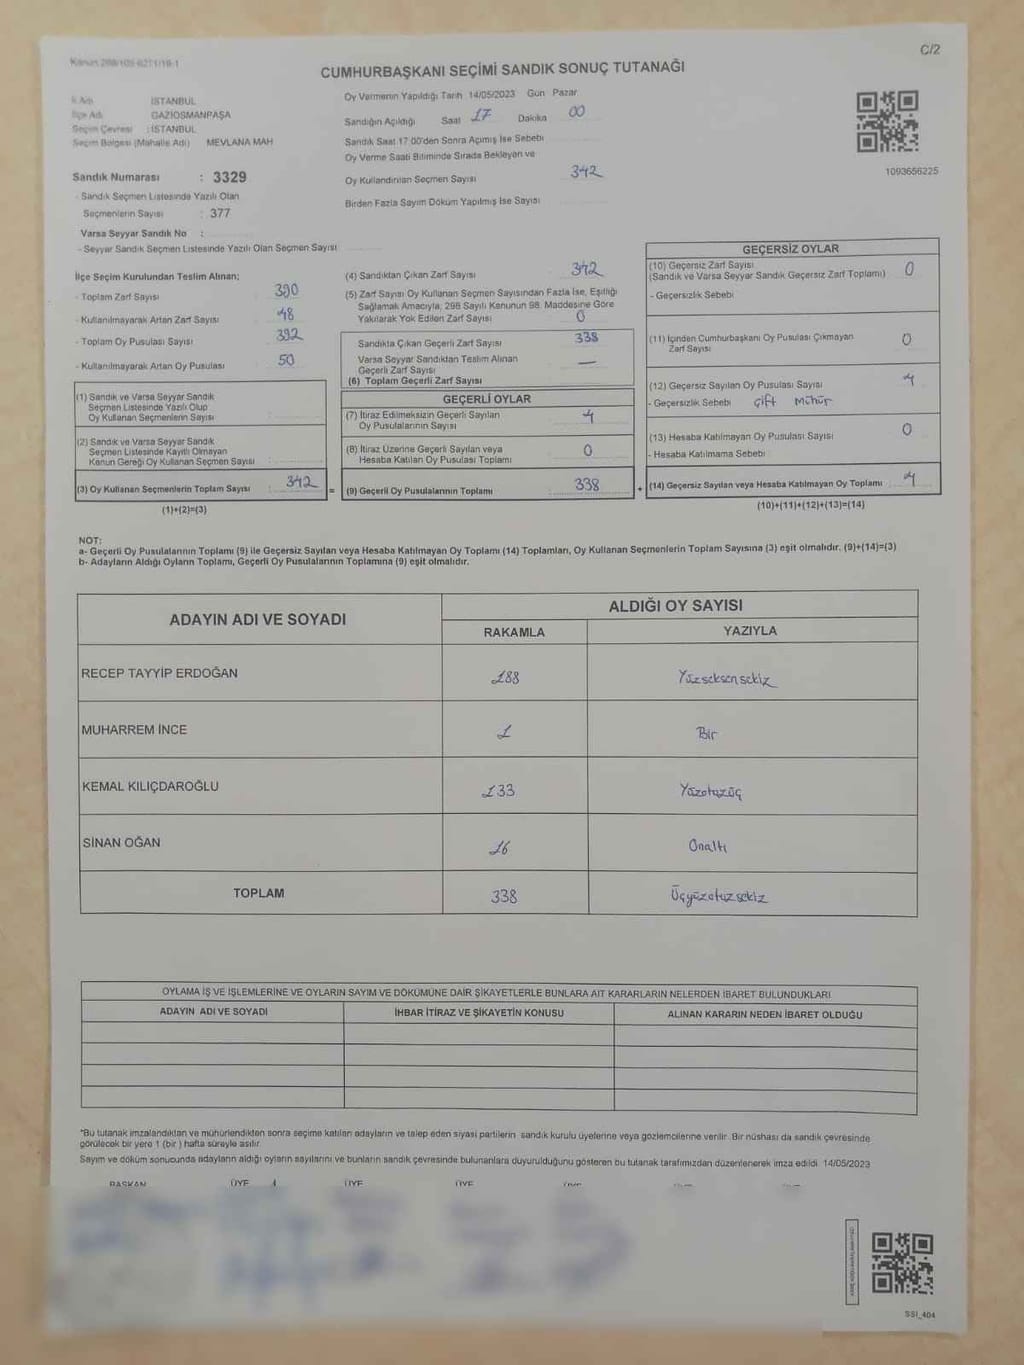 C/2
CUMHURBAŞKANI SEÇİMİ SANDIK SONUÇ TUTANAĞI
İl Adı İSTANBUL
İlçe Adı GAZİOSMANPAŞA
Seçim Çevresi : İSTANBUL
Seçim Bölgesi (Mahalle Adı) MEVLANA MAH
Sandık Numarası : 3329
- Sandık Seçmen Listesinde Yazılı Olan
Seçmenlerin Sayısı : 377
Varsa Seyyar Sandık No :
- Seyyar Sandık Seçmen Listesinde Yazılı Olan Seçmen Sayısı
Oy Vermenin Yapıldığı Tarih 14/05/2023 Gün Pazar
Sandığın Açıldığı Saat 17 Dakika 00
Sandık Saat 17.00'den Sonra Açımış İse Sebebi
Oy Verme Saati Bitiminde Sırada Bekleyen ve
Oy Kullandırılan Seçmen Sayısı 342
Birden Fazla Sayım Döküm Yapılmış İse Sayısı
1093656225
İlçe Seçim Kurulundan Teslim Alınan;
- Toplam Zarf Sayısı 390
- Kullanılmayarak Artan Zarf Sayısı 48
- Toplam Oy Pusulası Sayısı 392
- Kullanılmayarak Artan Oy Pusulası 50
(1) Sandık ve Varsa Seyyar Sandık
Seçmen Listesinde Yazılı Olup
Oy Kullanan Seçmenlerin Sayısı
(2) Sandık ve Varsa Seyyar Sandık
Seçmen Listesinde Kayıtlı Olmayan
Kanun Gereği Oy Kullanan Seçmen Sayısı :
(3) Oy Kullanan Seçmenlerin Toplam Sayısı : 342 =
(1)+(2)=(3)
(4) Sandıktan Çıkan Zarf Sayısı 342
(5) Zarf Sayısı Oy Kullanan Seçmen Sayısından Fazla İse, Eşitliği
Sağlamak Amacıyla, 298 Sayılı Kanunun 98. Maddesine Göre
Yakılarak Yok Edilen Zarf Sayısı 0
Sandıkta Çıkan Geçerli Zarf Sayısı 338
Varsa Seyyar Sandıktan Teslim Alınan
Geçerli Zarf Sayısı —
(6) Toplam Geçerli Zarf Sayısı
GEÇERLİ OYLAR
(7) İtiraz Edilmeksizin Geçerli Sayılan
Oy Pusulalarının Sayısı 4
(8) İtiraz Üzerine Geçerli Sayılan veya
Hesaba Katılan Oy Pusulası Toplamı 0
(9) Geçerli Oy Pusulalarının Toplamı 338 +
GEÇERSİZ OYLAR
(10) Geçersiz Zarf Sayısı
(Sandık ve Varsa Seyyar Sandık Geçersiz Zarf Toplamı) 0
- Geçersizlik Sebebi
(11) İçinden Cumhurbaşkanı Oy Pusulası Çıkmayan
Zarf Sayısı 0
(12) Geçersiz Sayılan Oy Pusulası Sayısı 4
- Geçersizlik Sebebi Çift Mühür
(13) Hesaba Katılmayan Oy Pusulası Sayısı 0
- Hesaba Katılmama Sebebi
(14) Geçersiz Sayılan veya Hesaba Katılmayan Oy Toplamı 4
(10)+(11)+(12)+(13)=(14)
NOT:
a- Geçerli Oy Pusulalarının Toplamı (9) ile Geçersiz Sayılan veya Hesaba Katılmayan Oy Toplamı (14) Toplamları, Oy Kullanan Seçmenlerin Toplam Sayısına (3) eşit olmalıdır. (9)+(14)=(3)
b- Adayların Aldığı Oyların Toplamı, Geçerli Oy Pusulalarının Toplamına (9) eşit olmalıdır.
ADAYIN ADI VE SOYADI
ALDIĞI OY SAYISI
RAKAMLA YAZIYLA
RECEP TAYYİP ERDOĞAN 188 Yüzseksensekiz
MUHARREM İNCE 1 Bir
KEMAL KILIÇDAROĞLU 133 Yüzotuzüç
SİNAN OĞAN 16 Onaltı
TOPLAM 338 Üçyüzotuzsekiz
OYLAMA İŞ VE İŞLEMLERİNE VE OYLARIN SAYIM VE DÖKÜMÜNE DAİR ŞİKAYETLERLE BUNLARA AİT KARARLARIN NELERDEN İBARET BULUNDUKLARI
ADAYIN ADI VE SOYADI İHBAR İTİRAZ VE ŞİKAYETİN KONUSU ALINAN KARARIN NEDEN İBARET OLDUĞU
*Bu tutanak imzalandıktan ve mühürlendikten sonra seçime katılan adayların ve talep eden siyasi partilerin sandık kurulu üyelerine veya gözlemcilerine verilir. Bir nüshası da sandık çevresinde
görülecek bir yere 1 (bir) hafta süreyle asılır.
Sayım ve döküm sonucunda adayların aldığı oyların sayılarını ve bunların sandık çevresinde bulunanlara duyurulduğunu gösteren bu tutanak tarafımızdan düzenlenerek imza edildi. 14/05/2023
BAŞKAN ÜYE ÜYE ÜYE
SSI_404